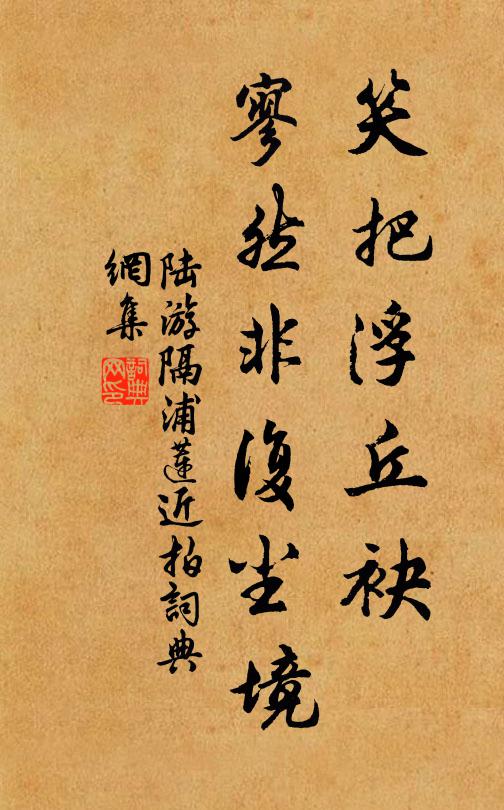 笑把浮丘袂
寥然非復尘境
陆游隔浦蓮近拍詞典
網集
詞典网印